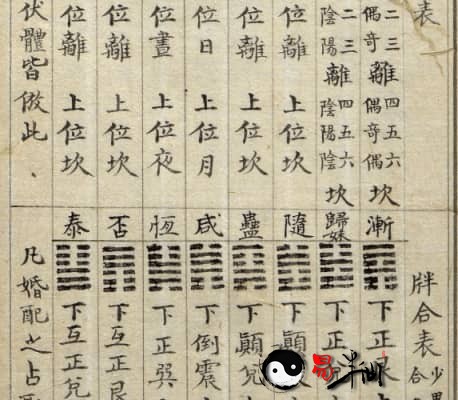 表
二三偶奇離四五六偶奇偶坎
二三陰陽離四五六陰陽陰坎
位離 上位坎
位離 上位坎
位日 上位月
位晝 上位夜
位離 上位坎
位離 上位坎
伏體皆倣此、
牉合表 少
合
漸 下正
歸妹 下正兌
隨 下顛
蠱 下顛兌
咸 下倒震
恆 下正巽
否 下互正艮
泰 下互正兌
凡婚配之占
易